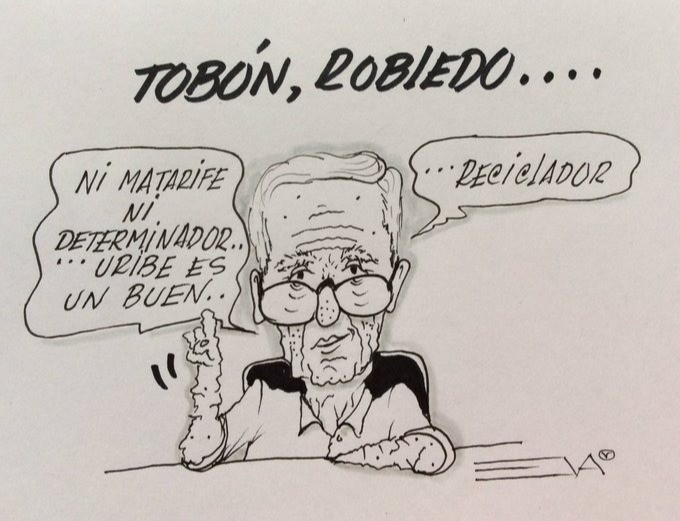 TOBÓN, ROBLEDO....
Ni MATARIFE
Ni
DETERMINADOR..
... URIBE ES
UN BUEN..
... RECICLADOR